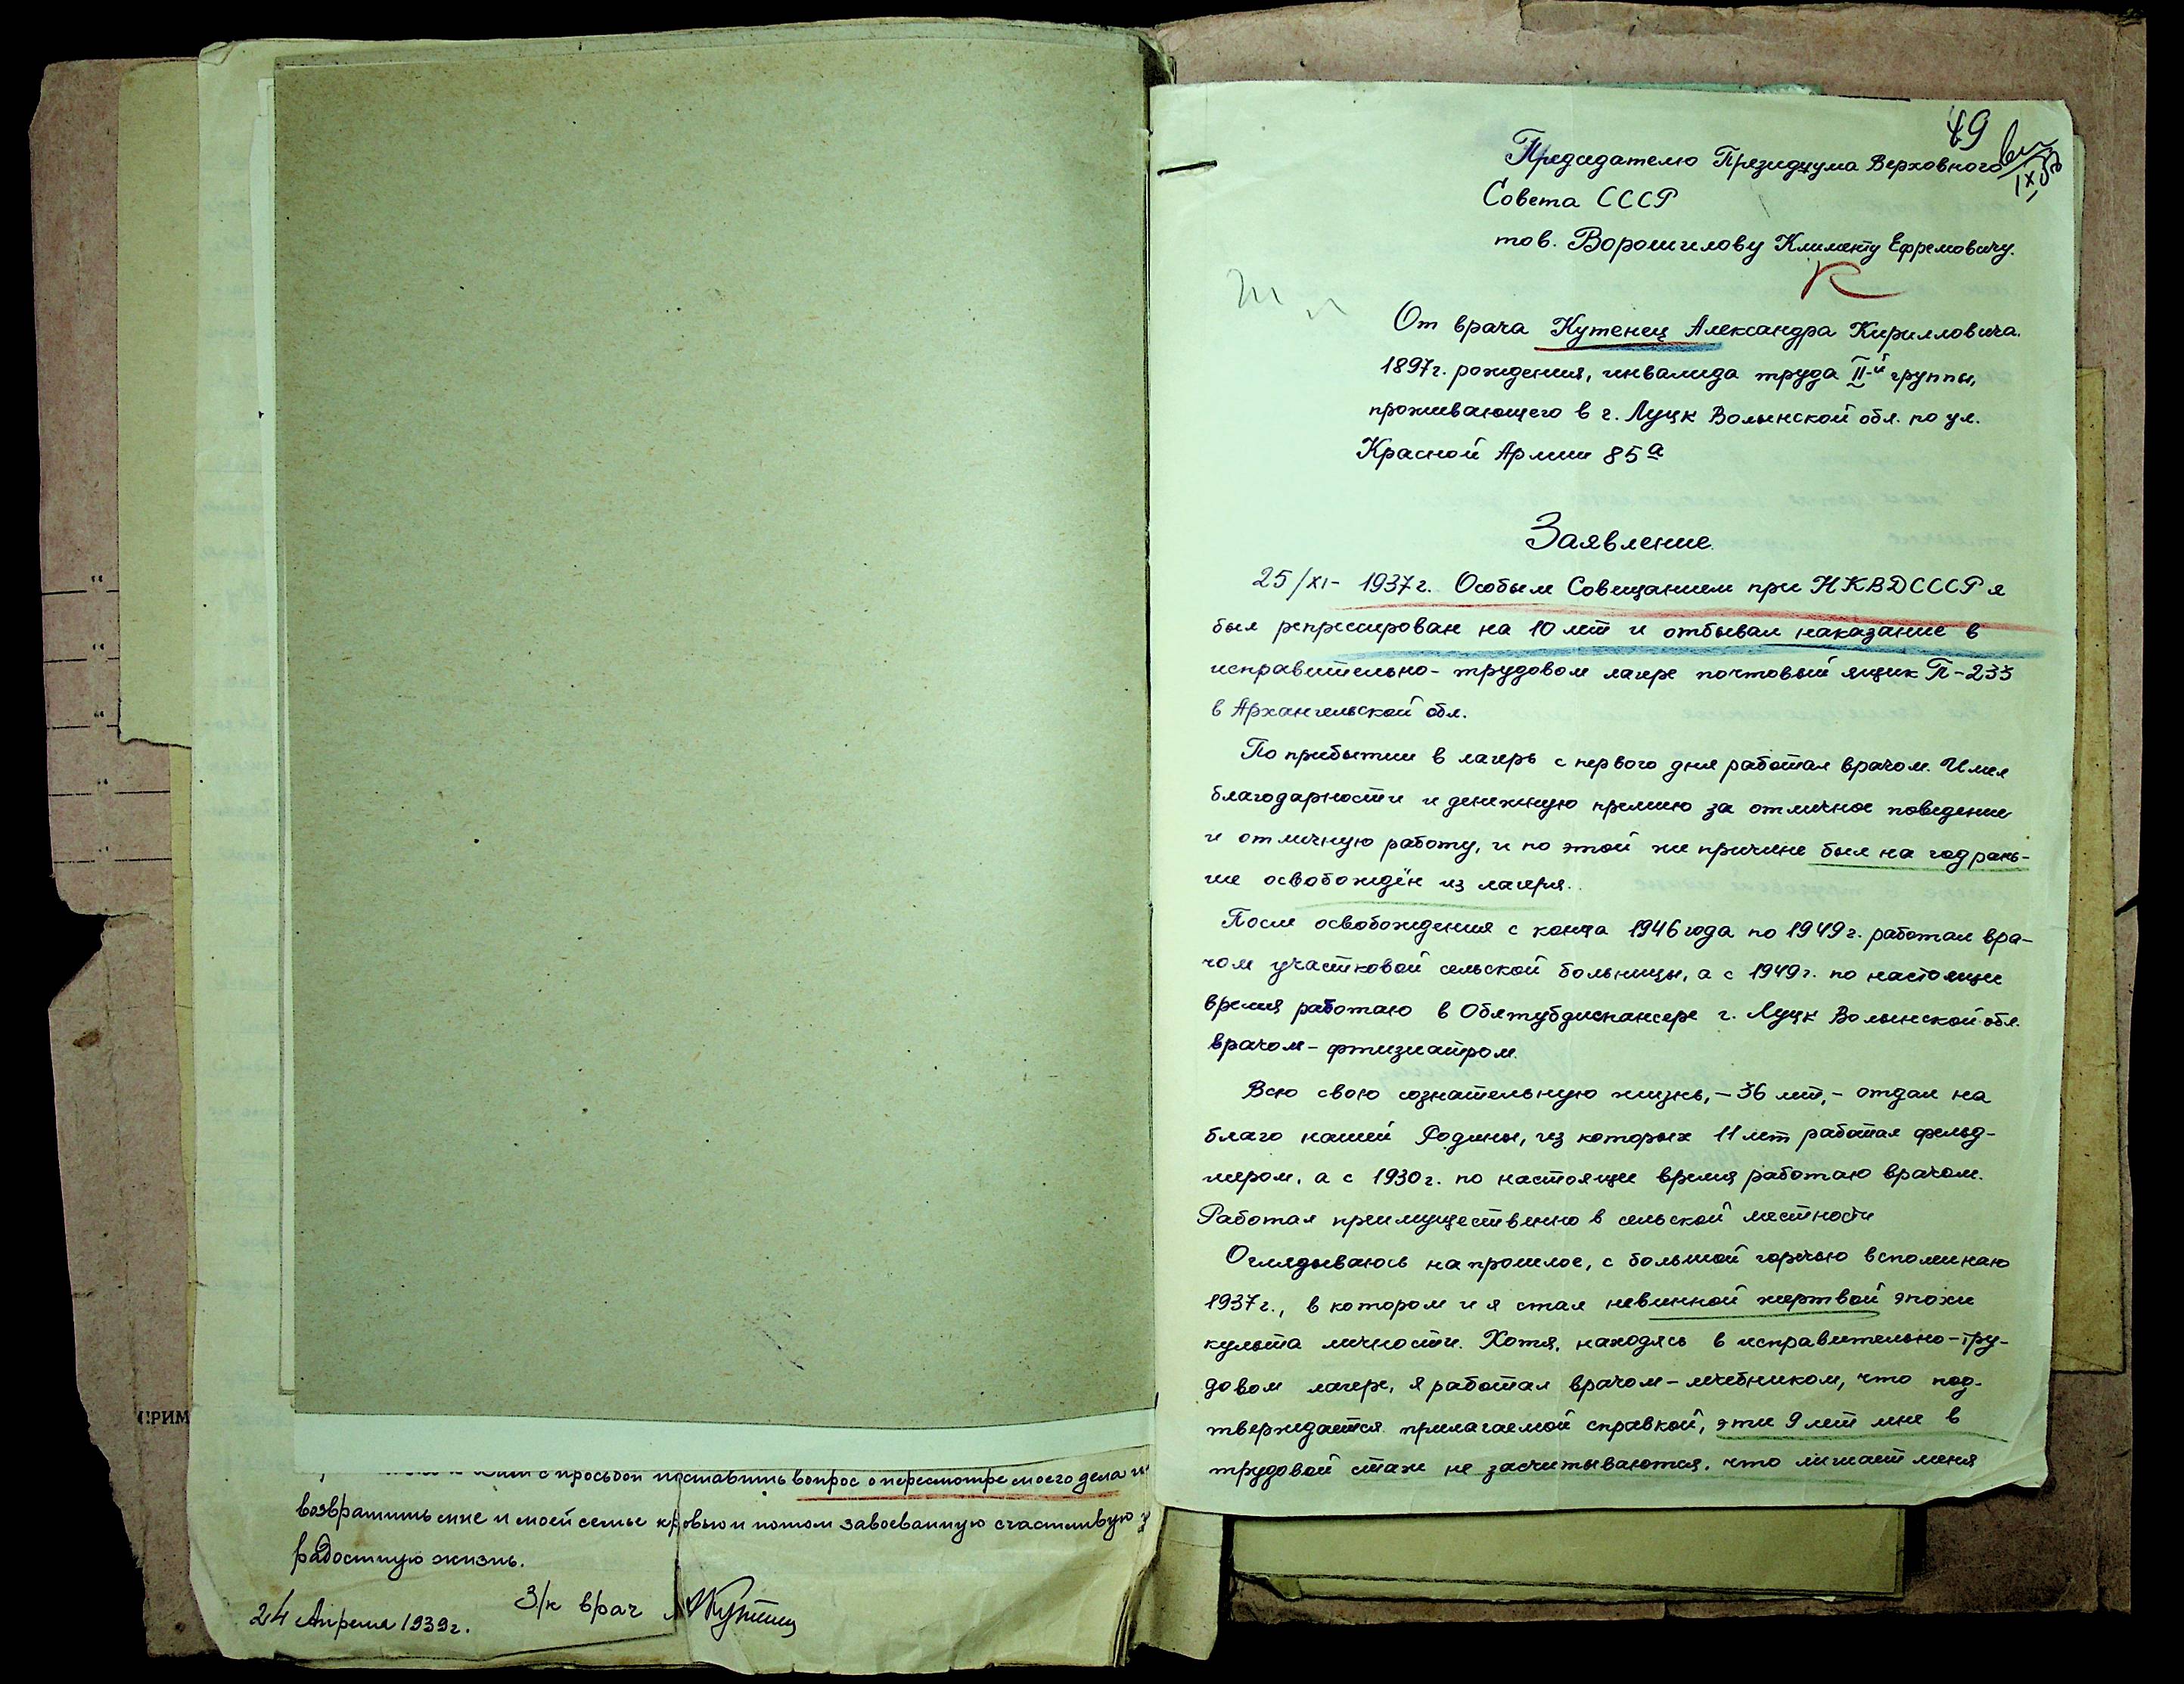 СПРИМ
с просьбой поставить вопрос о пересмотре моего дела и
возвратить мне и моей семье кровью и потом завоеванную счастливую и
радостную жизнь.
З/к врач АКутенец
24 Апреля 1939г.
49
Председателю Президиума Верховного
Совета СССР
тов. Ворошилову Клименту Ефремовичу.
От врача Кутенец Александра Кирилловича.
1897г. рождения, инвалида труда II-й группы,
проживающего в г. Луцк Волынской обл. по ул.
Красной Армии 85а
Заявление.
25/XI- 1937г. Особым Совещанием при НКВД СССР я
был репрессирован на 10 лет и отбывал наказание в
исправительно-трудовом лагере почтовый ящик П-233
в Архангельской обл.
По прибытии в лагерь с первого дня работал врачом. Имел
благодарности и денежную премию за отличное поведение
и отличную работу, и по этой же причине был на год рань-
ше освобождён из лагеря.
После освобождения с конца 1946 года по 1949г. работал вра-
чом участковой сельской больницы, а с 1949г. по настоящее
время работаю в Облтубдиспансере г. Луцк Волынской обл.
врачом-фтизиатром.
Всю свою сознательную жизнь,-36 лет,- отдал на
благо нашей Родины, из которых 11 лет работал фельд-
шером, а с 1930г. по настоящее время работаю врачом.
Работал преимущественно в сельской местности
Оглядываюсь на прошлое, с большой горечью вспоминаю
1937г., в котором и я стал невинной жертвой эпохи
культа личности. Хотя, находясь в исправительно-тру-
довом лагере, я работал врачом-лечебником, что под-
тверждается прилагаемой справкой, эти 9 лет мне в
трудовой стаж не засчитываются, что лишает меня